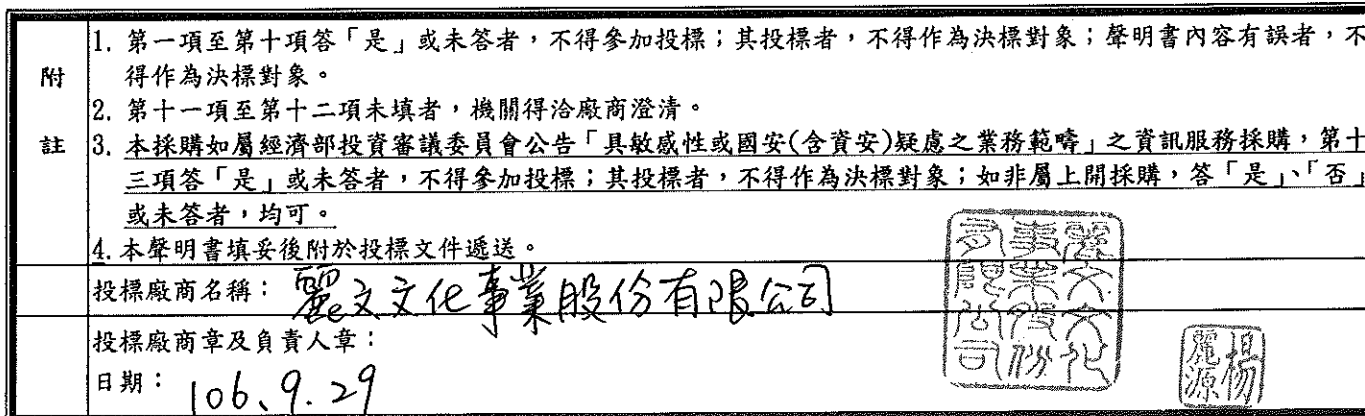 附註
1. 第一項至第十項答「是」或未答者，不得參加投標；其投標者，不得作為決標對象；聲明書內容有誤者，不
得作為決標對象。
2. 第十一項至第十二項未填者，機關得洽廠商澄清。
3. 本採購如屬經濟部投資審議委員會公告「具敏感性或國安(含資安)疑慮之業務範疇」之資訊服務採購，第十
三項答「是」或未答者，不得參加投標；其投標者，不得作為決標對象；如非屬上開採購，答「是」、「否」
或未答者，均可。
4. 本聲明書填妥後附於投標文件遞送。
投標廠商名稱：麗文文化事業股份有限公司
投標廠商章及負責人章：
日期：106、9.29
麗文文化
事業股份
有限公司
楊
麗源